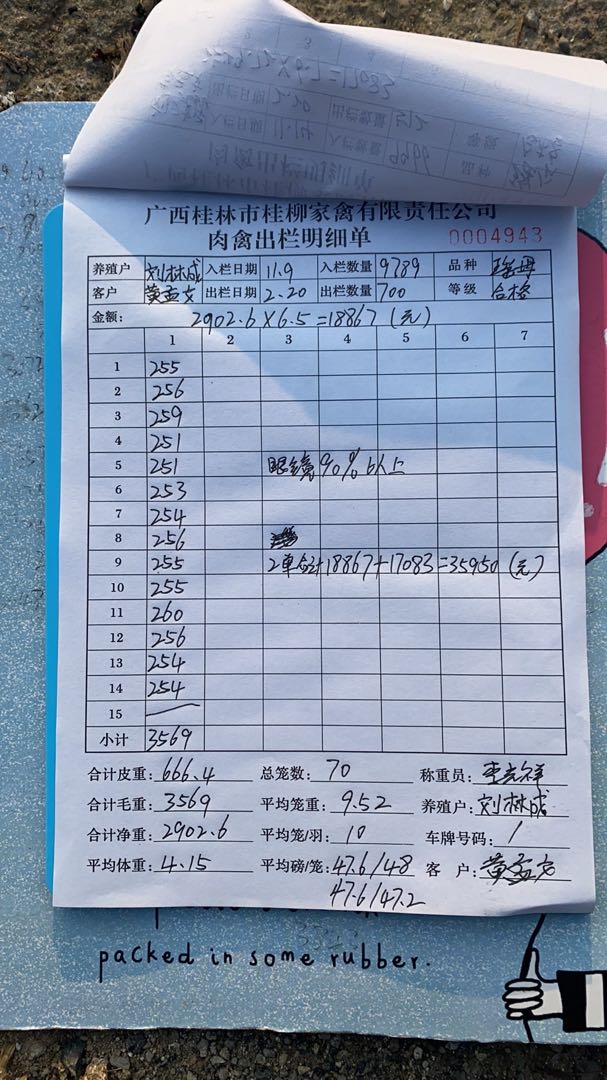 广西桂林市桂柳家禽有限责任公司
肉禽出栏明细单
0004943
养殖户 刘林成 入栏日期 11.9 入栏数量 9789 品种
客户 黄孟文 出栏日期 2.20 出栏数量 700 等级 合格
金额: 2902.6×6.5=18867(元)
1 2 3 4 5 6 7
1 255
2 256
3 259
4 251
5 251 眼镜90%以上
6 253
7 254
8 256
9 255 2单合计18867+17083=35950(元)
10 255
11 260
12 256
13 254
14 254
15
小计 3569
合计皮重: 666.4 总笼数: 70 称重员:
合计毛重: 3569 平均笼重: 9.52 养殖户: 刘林成
合计净重: 2902.6 平均笼/羽: 10 车牌号码: /
平均体重: 4.15 平均磅/笼: 47.6/48 客户: 黄孟文
47.6/47.2
packed in some rubber.